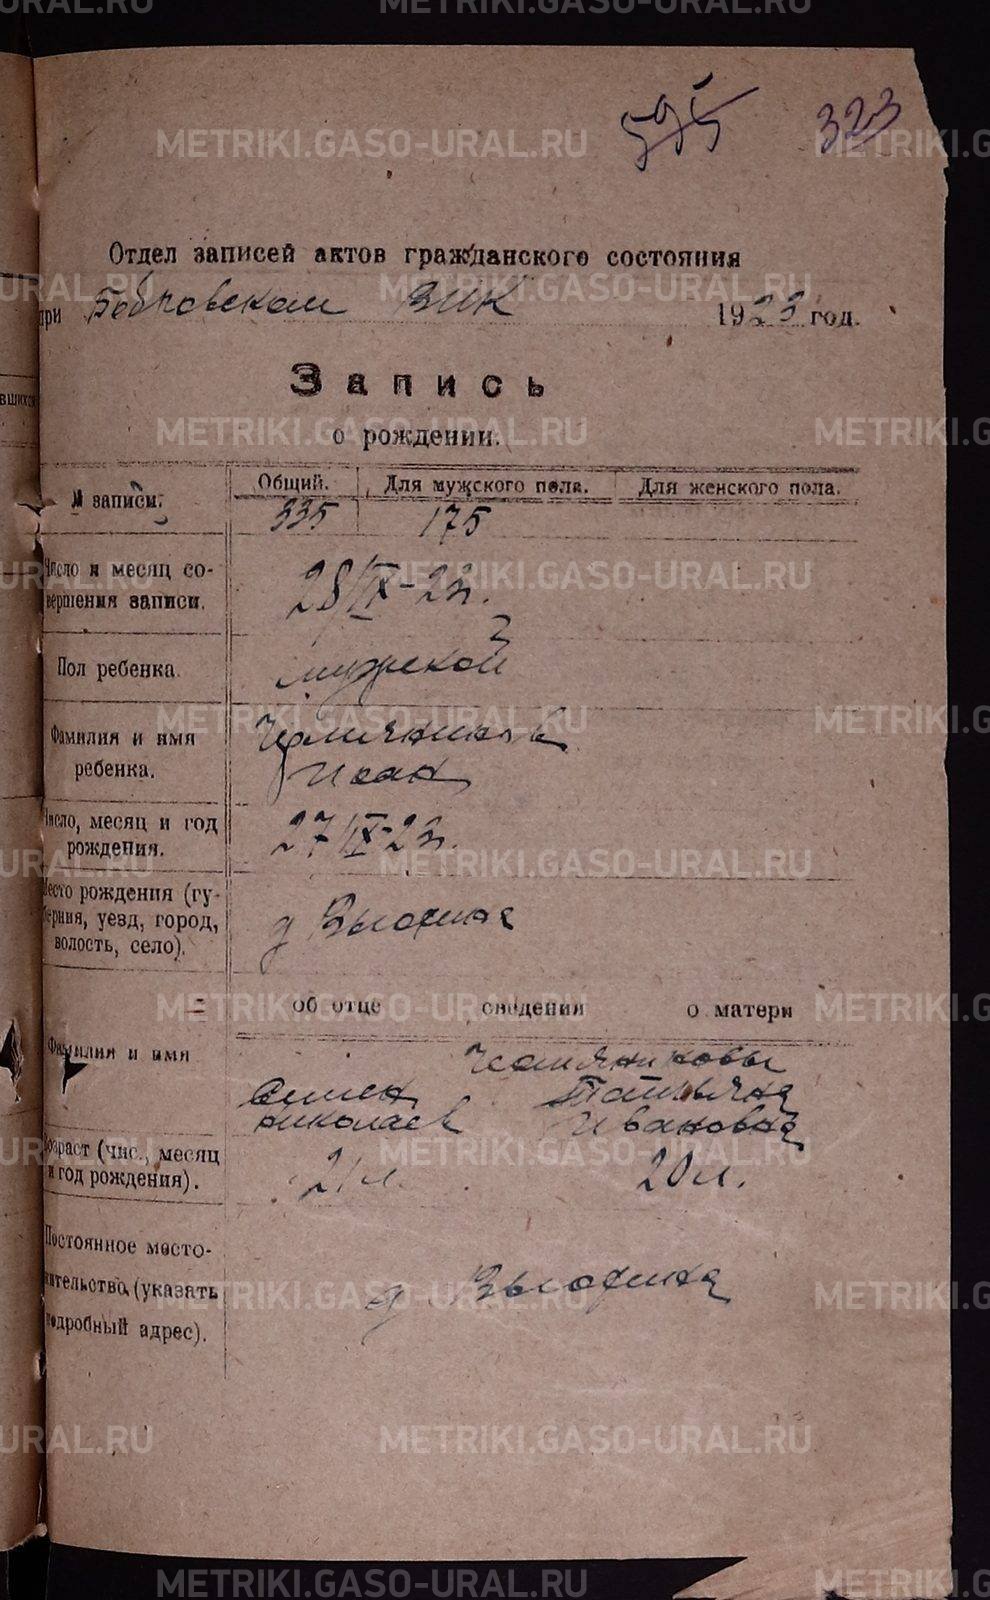 595 323
Отдел записей актов гражданского состояния
при Бобровском ВИК 1923 год.
Запись
о рождении.
№ записи. Общий. Для мужского пола. Для женского пола.
335 175
Число и месяц со-
вершения записи.
28/IX-23г.
Пол ребенка. мужской
Фамилия и имя
ребенка.
Исак
Число, месяц и год
рождения.
27/IX-23г.
Место рождения (гу-
берния, уезд, город,
волость, село).
д
об отце сведения о матери
Фамилия и имя
Семен Татьяна
Николаев Ивановна
Возраст (чис., месяц
и год рождения).
21 л. 20 л.
Постоянное место-
жительство (указать
подробный адрес).
д
METRIKI.GASO-URAL.RU